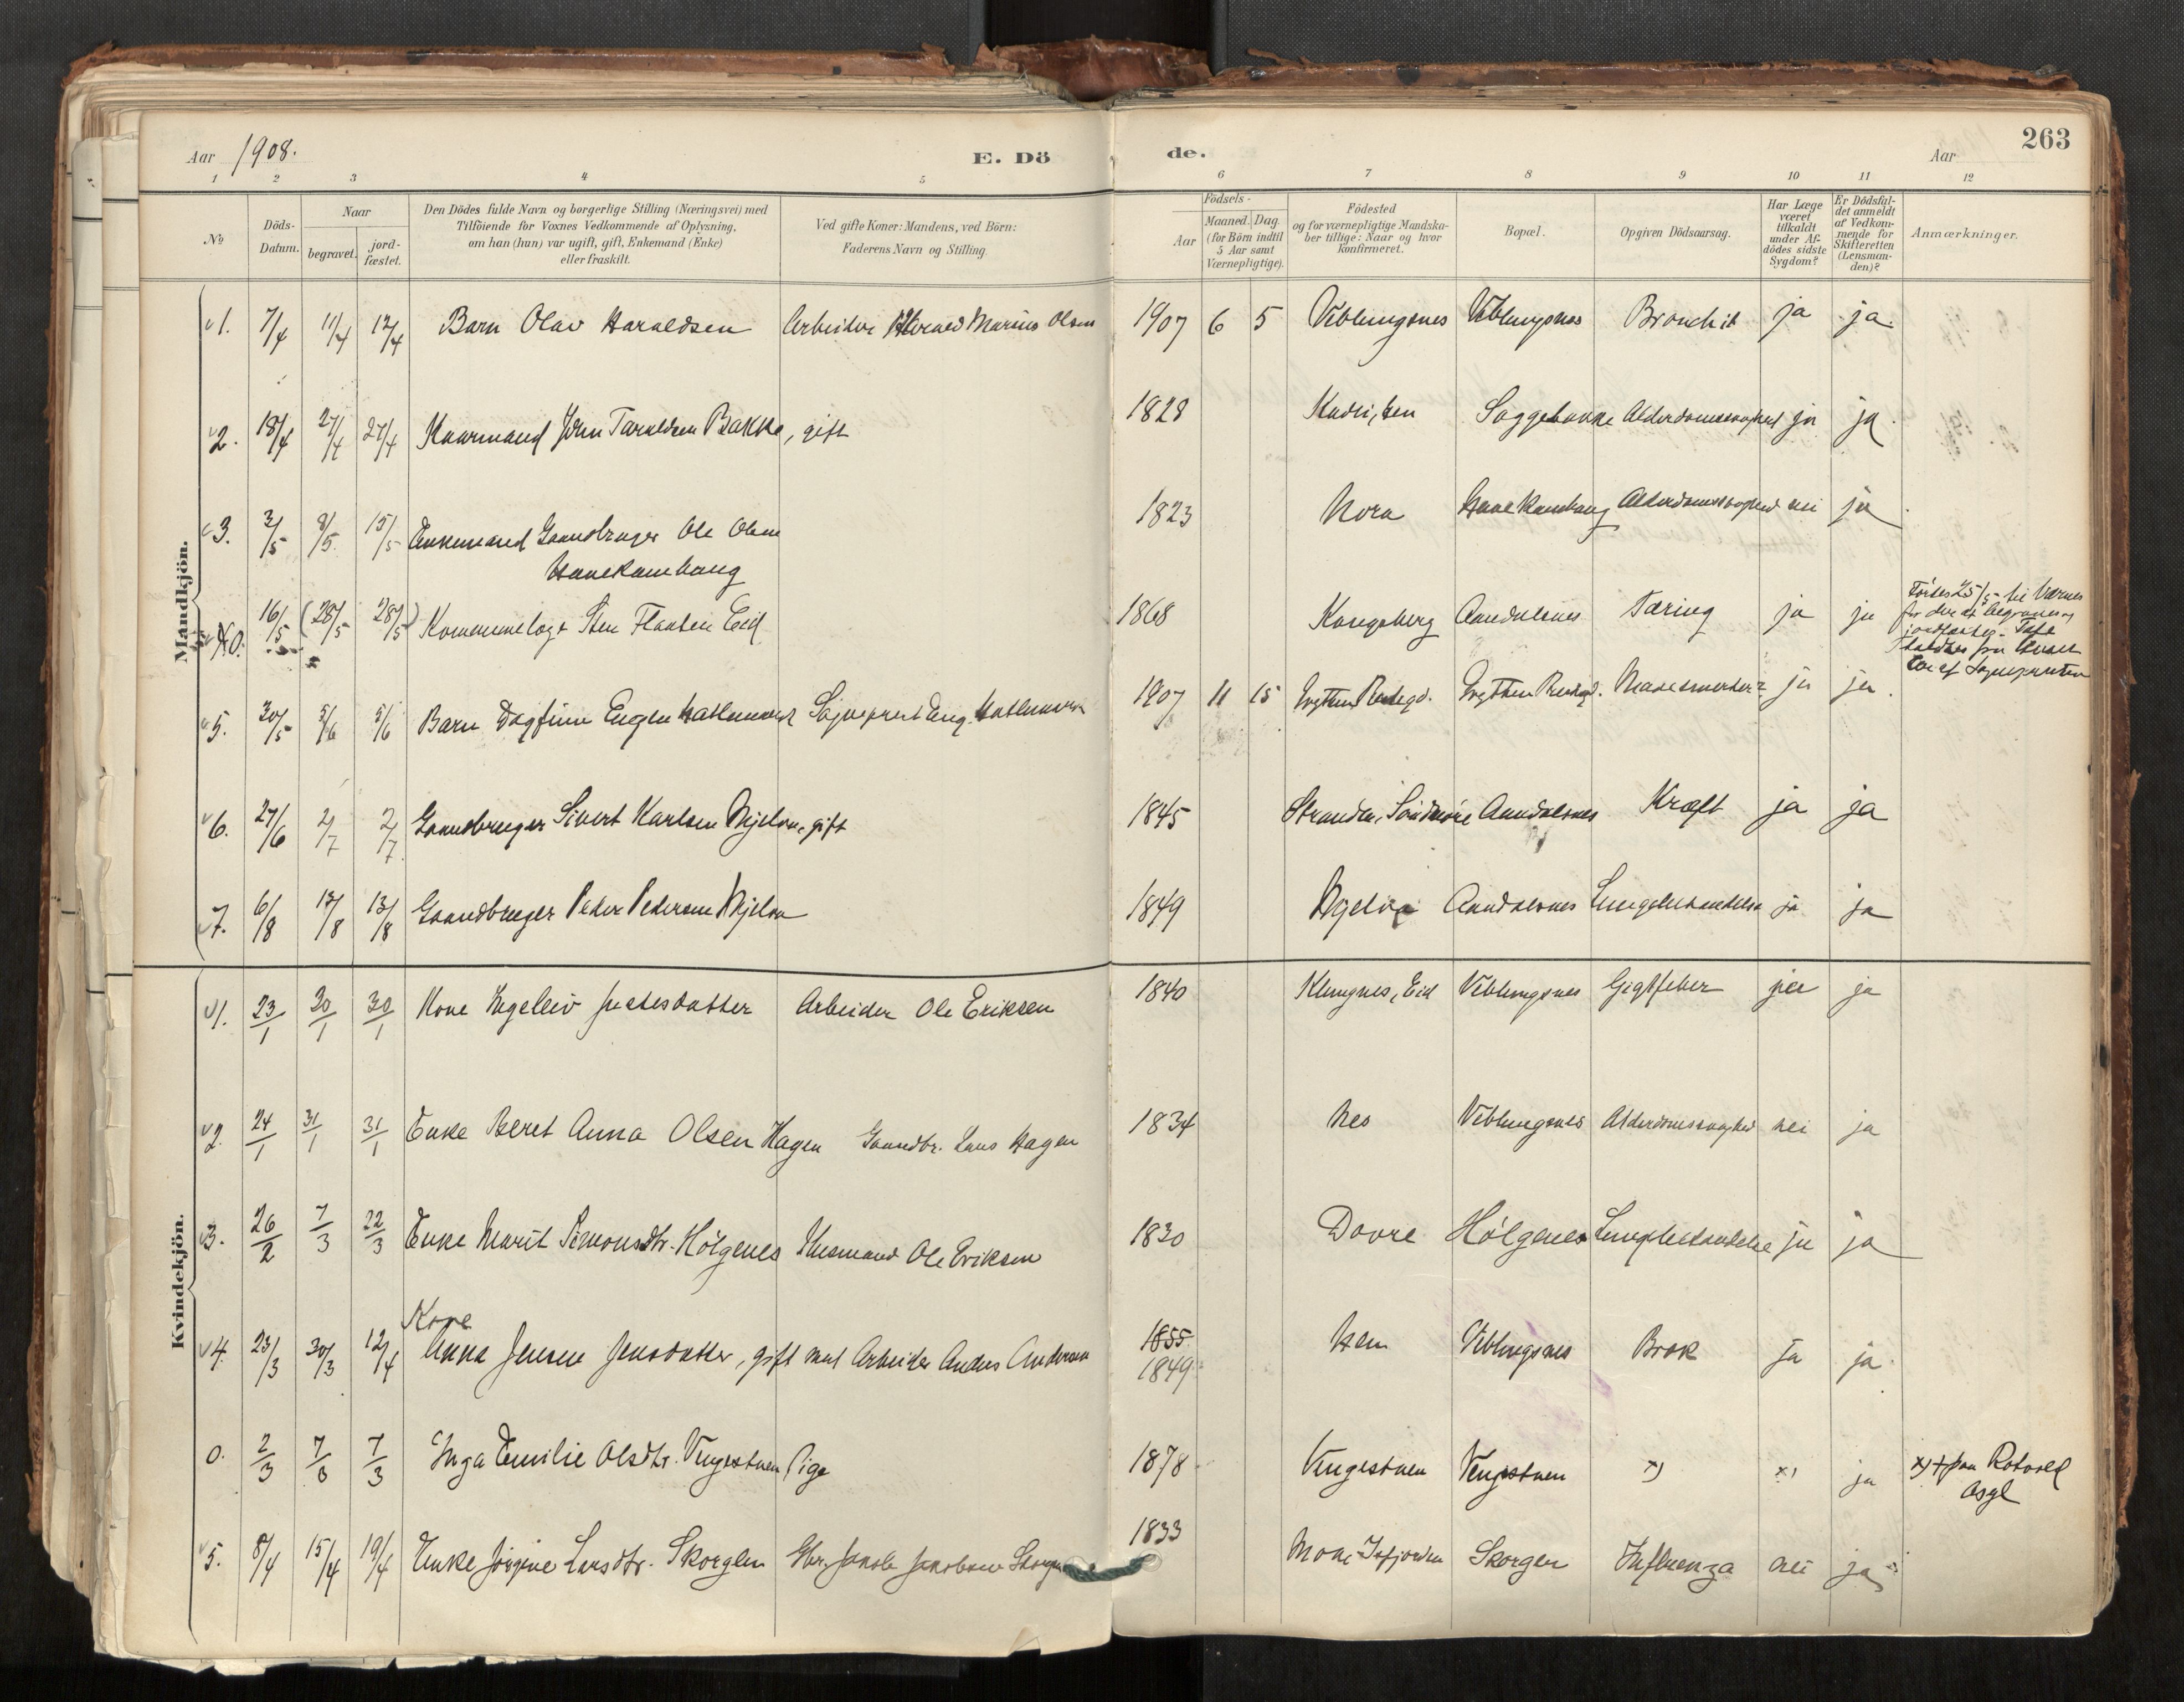 Aar 1908. E. Dö de. Aar 263
1 2 3 4 5 6 7 8 9 10 11 12
No
Döds-Datum.
Naar
begravet.
jordfæstet.
Den Dödes fulde Navn og borgerlige Stilling (Næringsvei) med
Tilföiende for Voxnes Vedkommende af Oplysning,
om han (hun) var ugift, gift, Enkemand (Enke)
eller fraskilt.
Ved gifte Koner: Mandens, ved Börn:
Faderens Navn og Stilling.
Födsels-
Aar
Maaned. Dag.
(for Börn indtil
5 Aar samt
Værnepligtige).
Födested
og for værnepligtige Mandska-
ber tillige: Naar og hvor
konfirmeret.
Bopæl.
Opgiven Dödsaarsag.
Har Læge
været
tilkaldt
under Af-
dödes sidste
Sygdom?
Er Dödsfal-
det anmeldt
af Vedkom-
mende for
Skifteretten
(Lensman-
den)?
Anmærkninger.
Mandkjön.
1. 7/4 11/4 12/4 Barn Olav Haraldsen Arbeider Harald Marius Olsen 1907 6 5 Veblungsnes Veblungsnes Bronchit ja ja
2. 18/4 27/4 27/4 Kaarmand John Taraldsen Bakke, gift 1828 Soggebakke Alderdomssvaghed ja ja
3. 3/5 8/5 15/5 Enkemand Gaardbruger Ole Olsen
Hanekamhaug 1823 Nora Hanekamhaug Alderdomssvaghed nei ja
0. 16/5 (28/5 28/5) Kommunelæge Sten Flaaten Eid 1868 Kongsberg Aandalsnes Tæring ja ja
Førtes 25/5 til Værnes
for der at begraves og
jordfæstes.
5. 30/5 5/6 5/6 Barn Dagfinn Eugen Hatlemark Sogneprest Eug. Hatlemark 1907 11 15 Grytten Prestegd. Grytten Prestegd. ja ja
6. 27/6 2/7 2/7 Gaardbruger Sivert Karlsen Mjelva, gift 1845 Stranden, Söndmöre Aandalsnes Kræft ja ja
7. 6/8 13/8 13/8 Gaardbruger Peder Pedersen Mjelva 1849 Mjelva Aandalsnes Lungebetændelse ja ja
Kvindekjön.
1. 23/1 30/1 30/1 Kone Ingeleiv Arbeider Ole Eriksen 1840 Klungnes, Eid Veblungsnes Gigtfeber ja
2. 24/1 31/1 31/1 Enke Beret Anna Olsen Hagen Gaardbr. Lars Hagen 1834 Nes Veblungsnes Alderdomssvaghed nei ja
3. 26/2 7/3 22/3 Enke Marit Simonsdtr. Hölgenes Husmand Ole Eriksen 1830 Dovre Hölgenes Lungebetændelse ja ja
Kone
4. 23/3 30/3 12/4 Anna Jensen Jensdatter, gift med Arbeider Anders Andersen 1855 Hen Veblungsnes Brok ja ja
1849
0. 2/3 7/3 7/3 Inga Emilie Olsdtr. Vengestuen Pige 1878 Vengestuen Vengestuen x) x) ja x) + paa Rotvold
Asyl
5. 8/4 15/4 19/4 Enke Jörgine Larsdtr. Skorgen Gbr. Jakob Jakobsen Skorgen 1833 Moen Isfjorden Skorgen Influenza nei ja